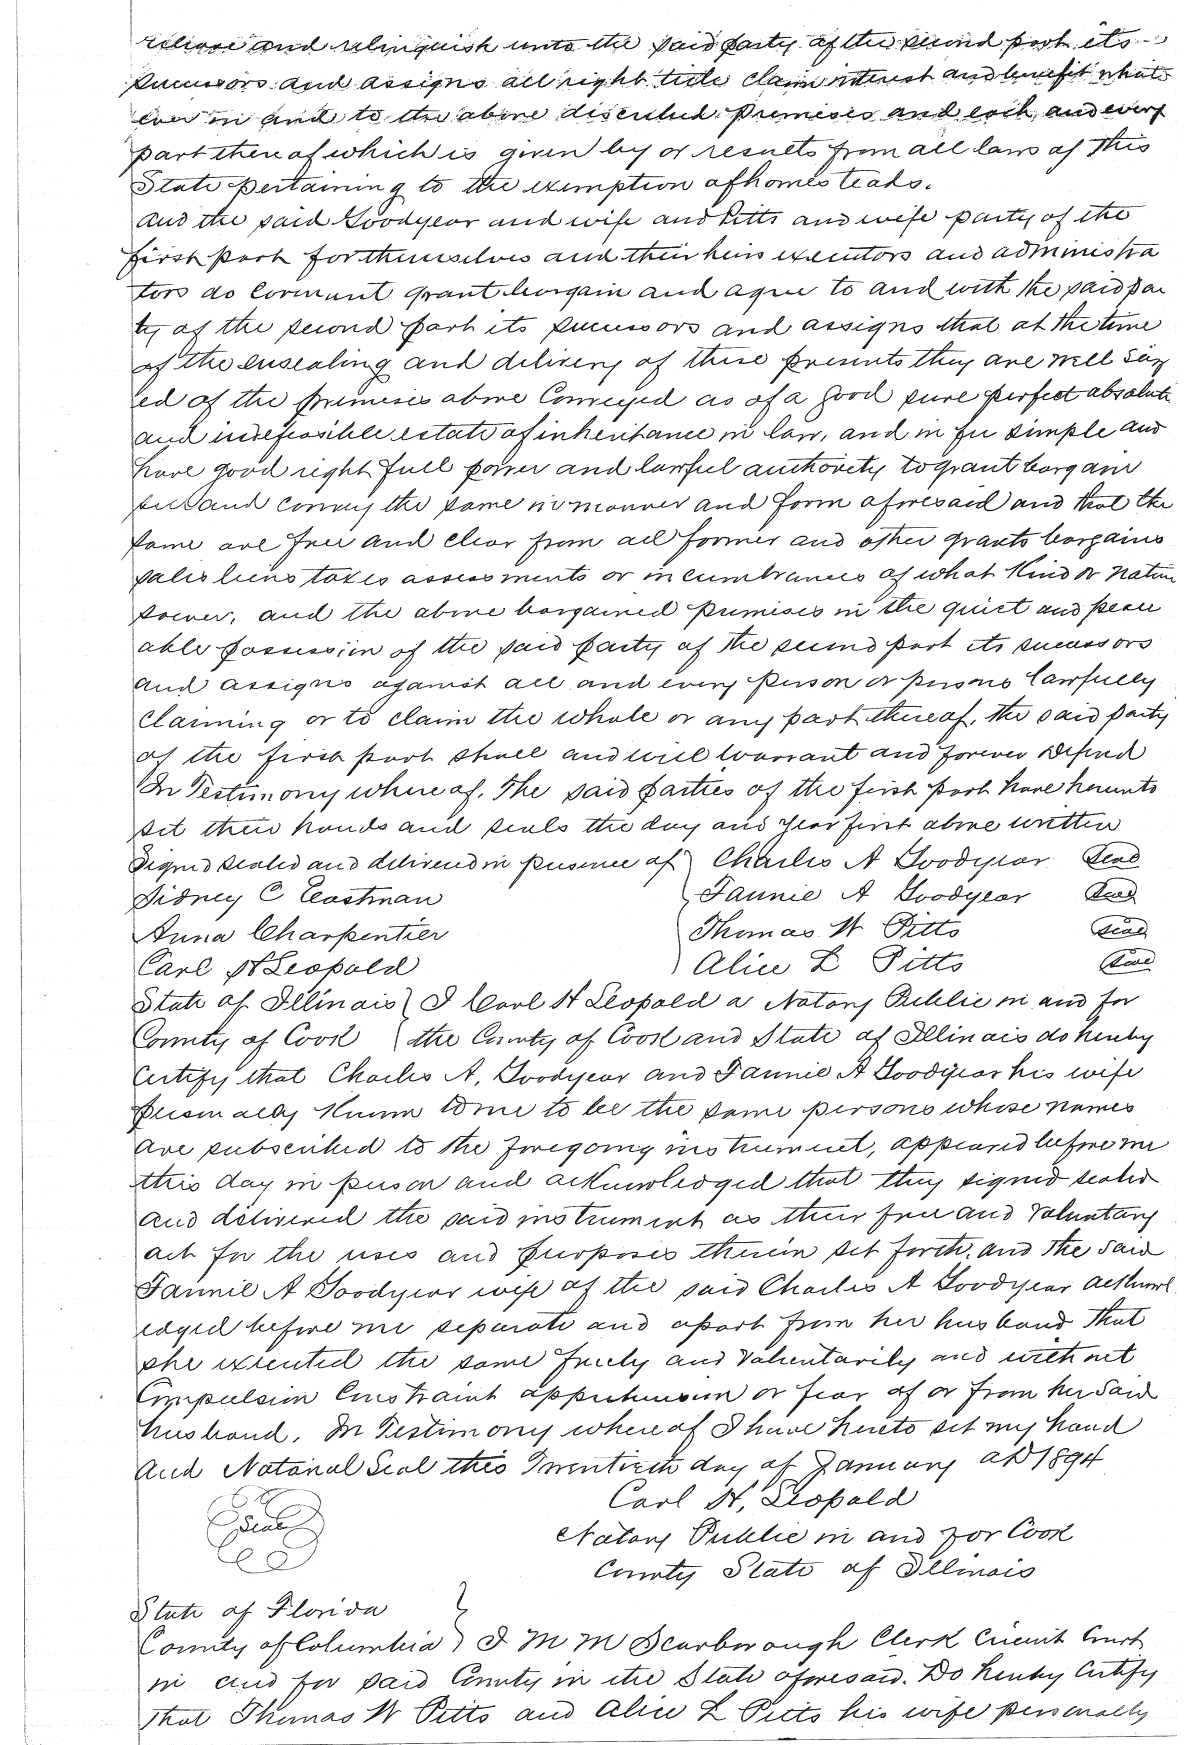 release and relinquish unto the said party of the second part its
successors and assigns all right title claim interest and benefit what
ever in and to the above described premises and each and every
part thereof which is given by or results from all laws of this
State pertaining to the exemption of homesteads.
And the said Goodyear and wife and Pitts and wife party of the
first part for themselves and their heirs executors and administra
tors do covenant grant bargain and agree to and with the said par
ty of the second part its successors and assigns that at the time
of the ensealing and delivery of these presents they are well siez
ed of the premises above Conveyed as of a good sure perfect absolute
and indefeasible estate of inheritance in law, and in fee simple and
have good right full power and lawful authority to grant bargain
sell and convey the same in manner and form aforesaid and that the
same are free and clear from all former and other grants bargains
sales liens taxes assessments or incumbrances of what Kind or nature
soever, and the above bargained premises in the quiet and peace
able possession of the said party of the second part its successors
and assigns against all and every person or persons lawfully
claiming or to claim the whole or any part thereof, the said party
of the first part shall and will warrant and forever Defend
In Testimony where of. The said parties of the first part have hereunto
set their hands and seals the day and year first above written
Signed sealed and delivered in presence of } Charles A Goodyear Seal
Sidney C Eastman Fannie A Goodyear Seal
Anna Charpentier Thomas W Pitts Seal
Carl H Leopold Alice L Pitts Seal
State of Illinois { I Carl H Leopold a Notary Public in and for
County of Cook { the County of Cook and State of Illinois do hereby
certify that Charles A, Goodyear and Fannie A Goodyear his wife
personally Known to me to be the same persons whose names
are subscribed to the foregoing instrument, appeared before me
this day in person and acknowledged that they signed sealed
and delivered the said instrument as their free and Voluntary
act for the uses and purposes therein set forth. and the said
Fannie A Goodyear wife of the said Charles A Goodyear acknowl
edged before me separate and apart from her husband that
she executed the same freely and Voluntarily and without
Compulsion Constraint apprehension or fear of or from her said
husband. In Testimony where of I have hereto set my hand
and Notarial Seal this Twentieth day of January AD 1894
Carl H, Leopold
Seal Notary Public in and for Cook
County State of Illinois
State of Florida }
County of Columbia } I M M Scarborough Clerk Circuit Court
in and for said County in the State aforesaid. Do hereby Certify
that Thomas W Pitts and Alice L Pitts his wife personally